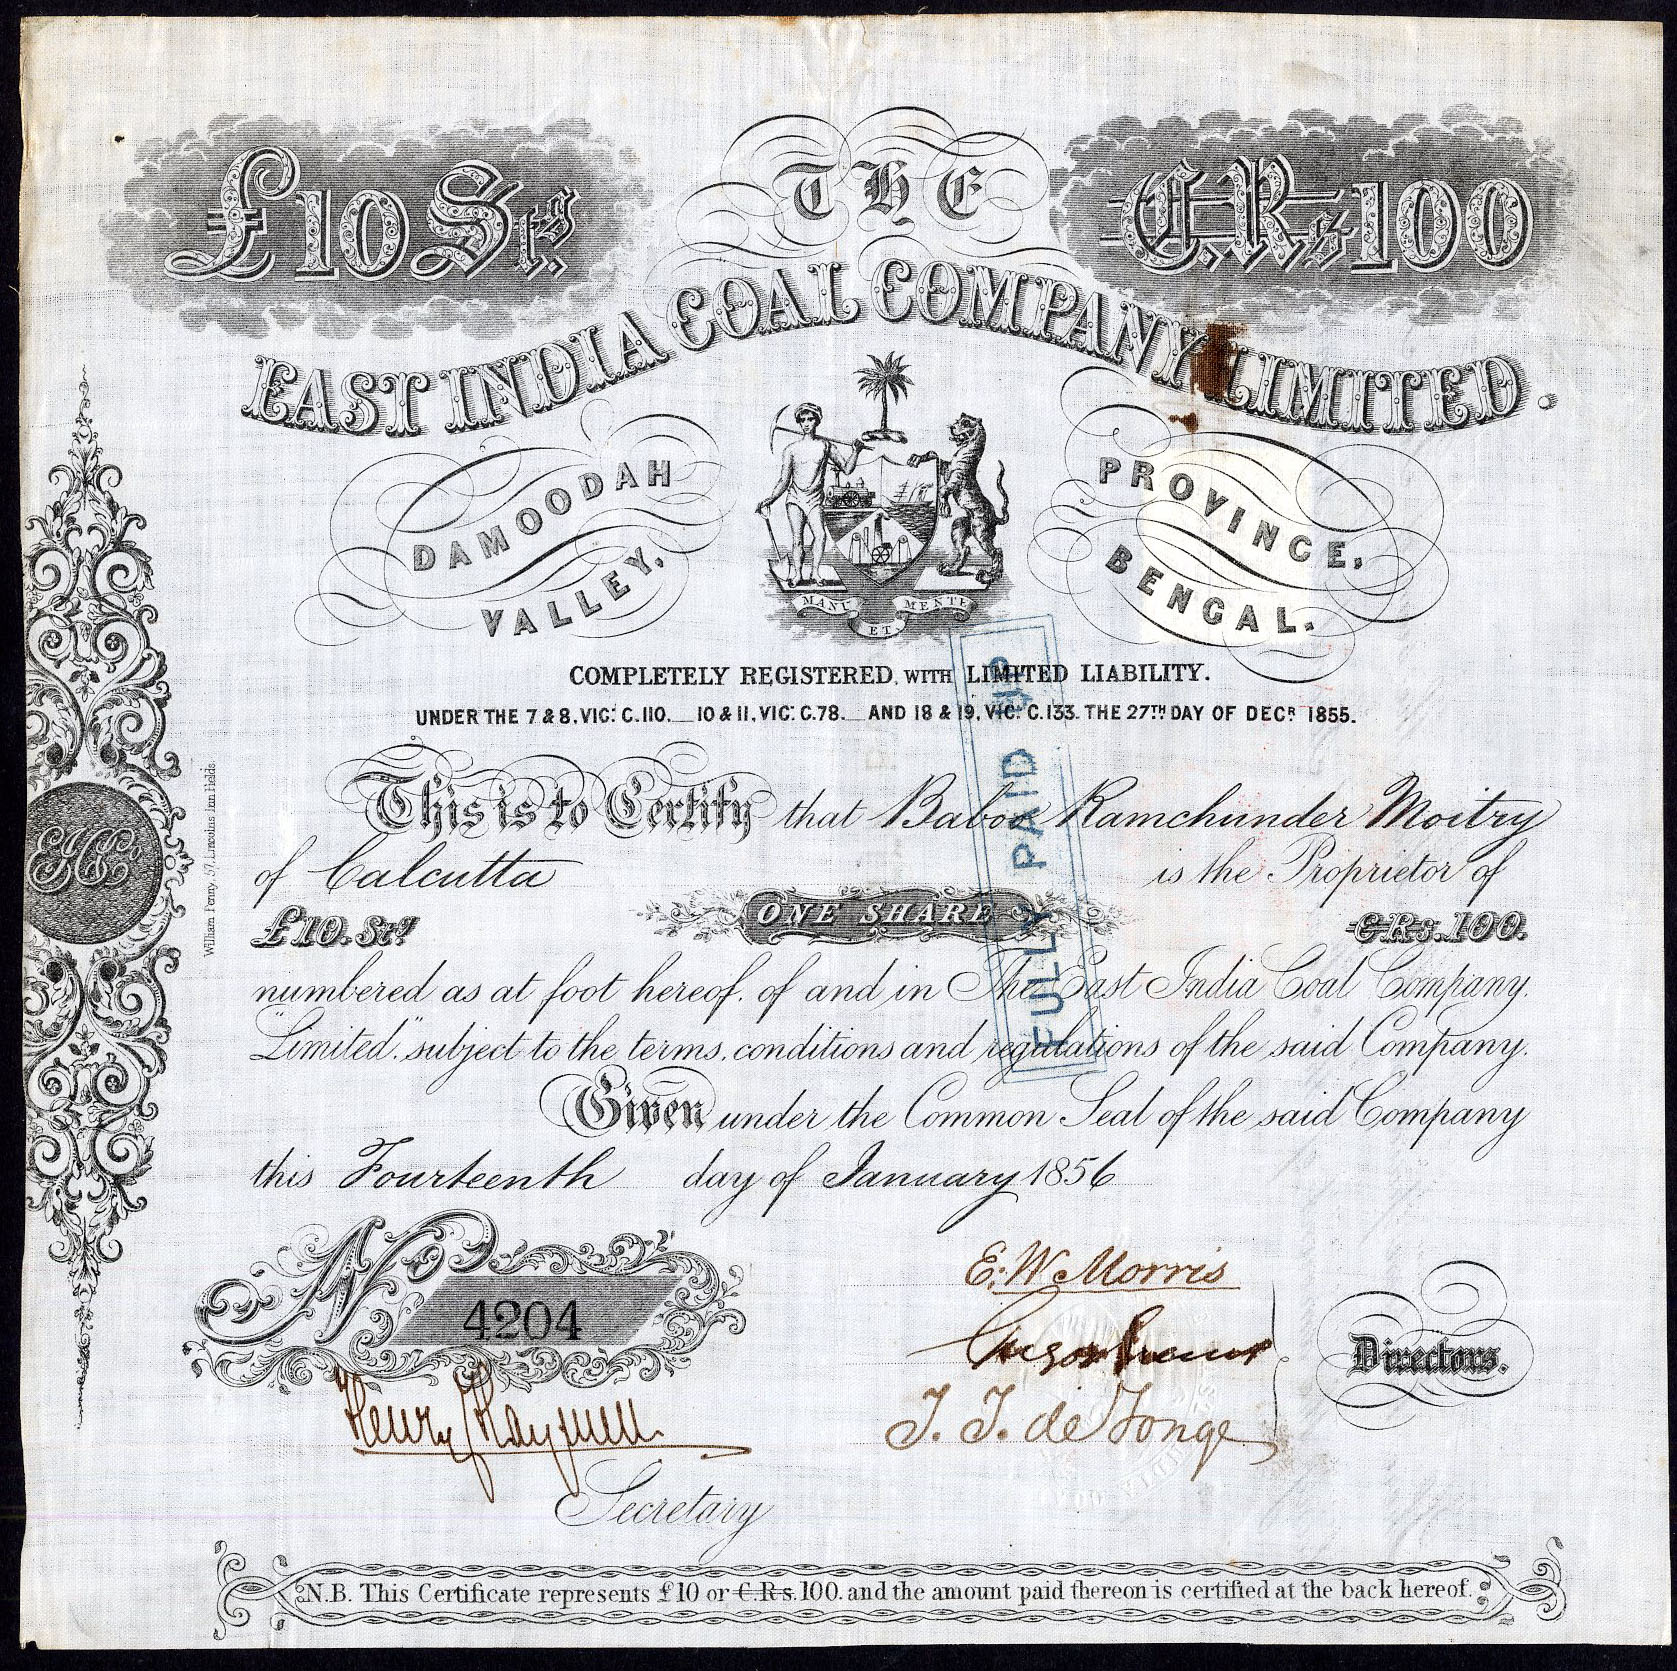 £10 Stg.
THE
C.Rs 100
EAST INDIA COAL COMPANY LIMITED.
DAMOODAH
VALLEY,
PROVINCE,
BENGAL.
MANU ET MENTE
COMPLETELY REGISTERED, WITH LIMITED LIABILITY.
UNDER THE 7 & 8, VIC: C. 110. 10 & 11, VIC: C. 78. AND 18 & 19, VIC: C. 133. THE 27TH DAY OF DECR 1855.
This is to Certify that Baboo Ramchunder Moitry
of Calcutta is the Proprietor of
£10. Stg ONE SHARE C.Rs. 100.
numbered as at foot hereof, of and in The East India Coal Company,
"Limited," subject to the terms, conditions and regulations of the said Company.
Given under the Common Seal of the said Company
this Fourteenth day of January 1856
FULLY PAID UP
William Penny, 57, Lincolns Inn Fields
No 4204
E. W. Morris
J. J. de Jonge
Directors.
Henry
Secretary
N.B. This Certificate represents £10 or C.Rs. 100. and the amount paid thereon is certified at the back hereof.